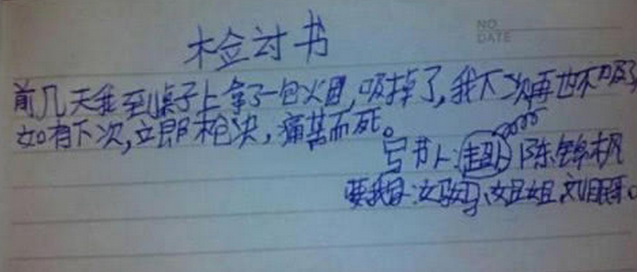 NO.
DATE
检讨书
前几天我到桌子上拿了一包烟,吸掉了,我下次再也不吸了
如有下次,立即枪决,痛苦而死。
写书人: 陈锦枫
妈妈,姐姐,